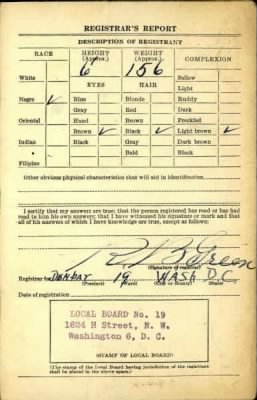 REGISTRAR'S REPORT
DESCRIPTION OF REGISTRANT
RACE HEIGHT (Approx.) WEIGHT (Approx.) COMPLEXION
6 156
White EYES HAIR Sallow
Light
Negro ✓ Blue Blonde Ruddy
Gray Red Dark
Oriental Hazel Brown Freckled
Brown ✓ Black ✓ Light brown ✓
Indian Black Gray Dark brown
Bald Black
Filipino
Other obvious physical characteristics that will aid in identification
I certify that my answers are true; that the person registered has read or has had
read to him his own answers; that I have witnessed his signature or mark and that
all of his answers of which I have knowledge are true, except as follows:
Green
(Signature of registrar)
Registrar for 19 WASH D.C.
(Precinct) (Ward) (City or County) (State)
Date of registration
LOCAL BOARD No. 19
1624 H Street, N. W.
Washington 6, D. C.
(STAMP OF LOCAL BOARD)
(The stamp of the Local Board having jurisdiction of the registrant
shall be placed in the above space.)